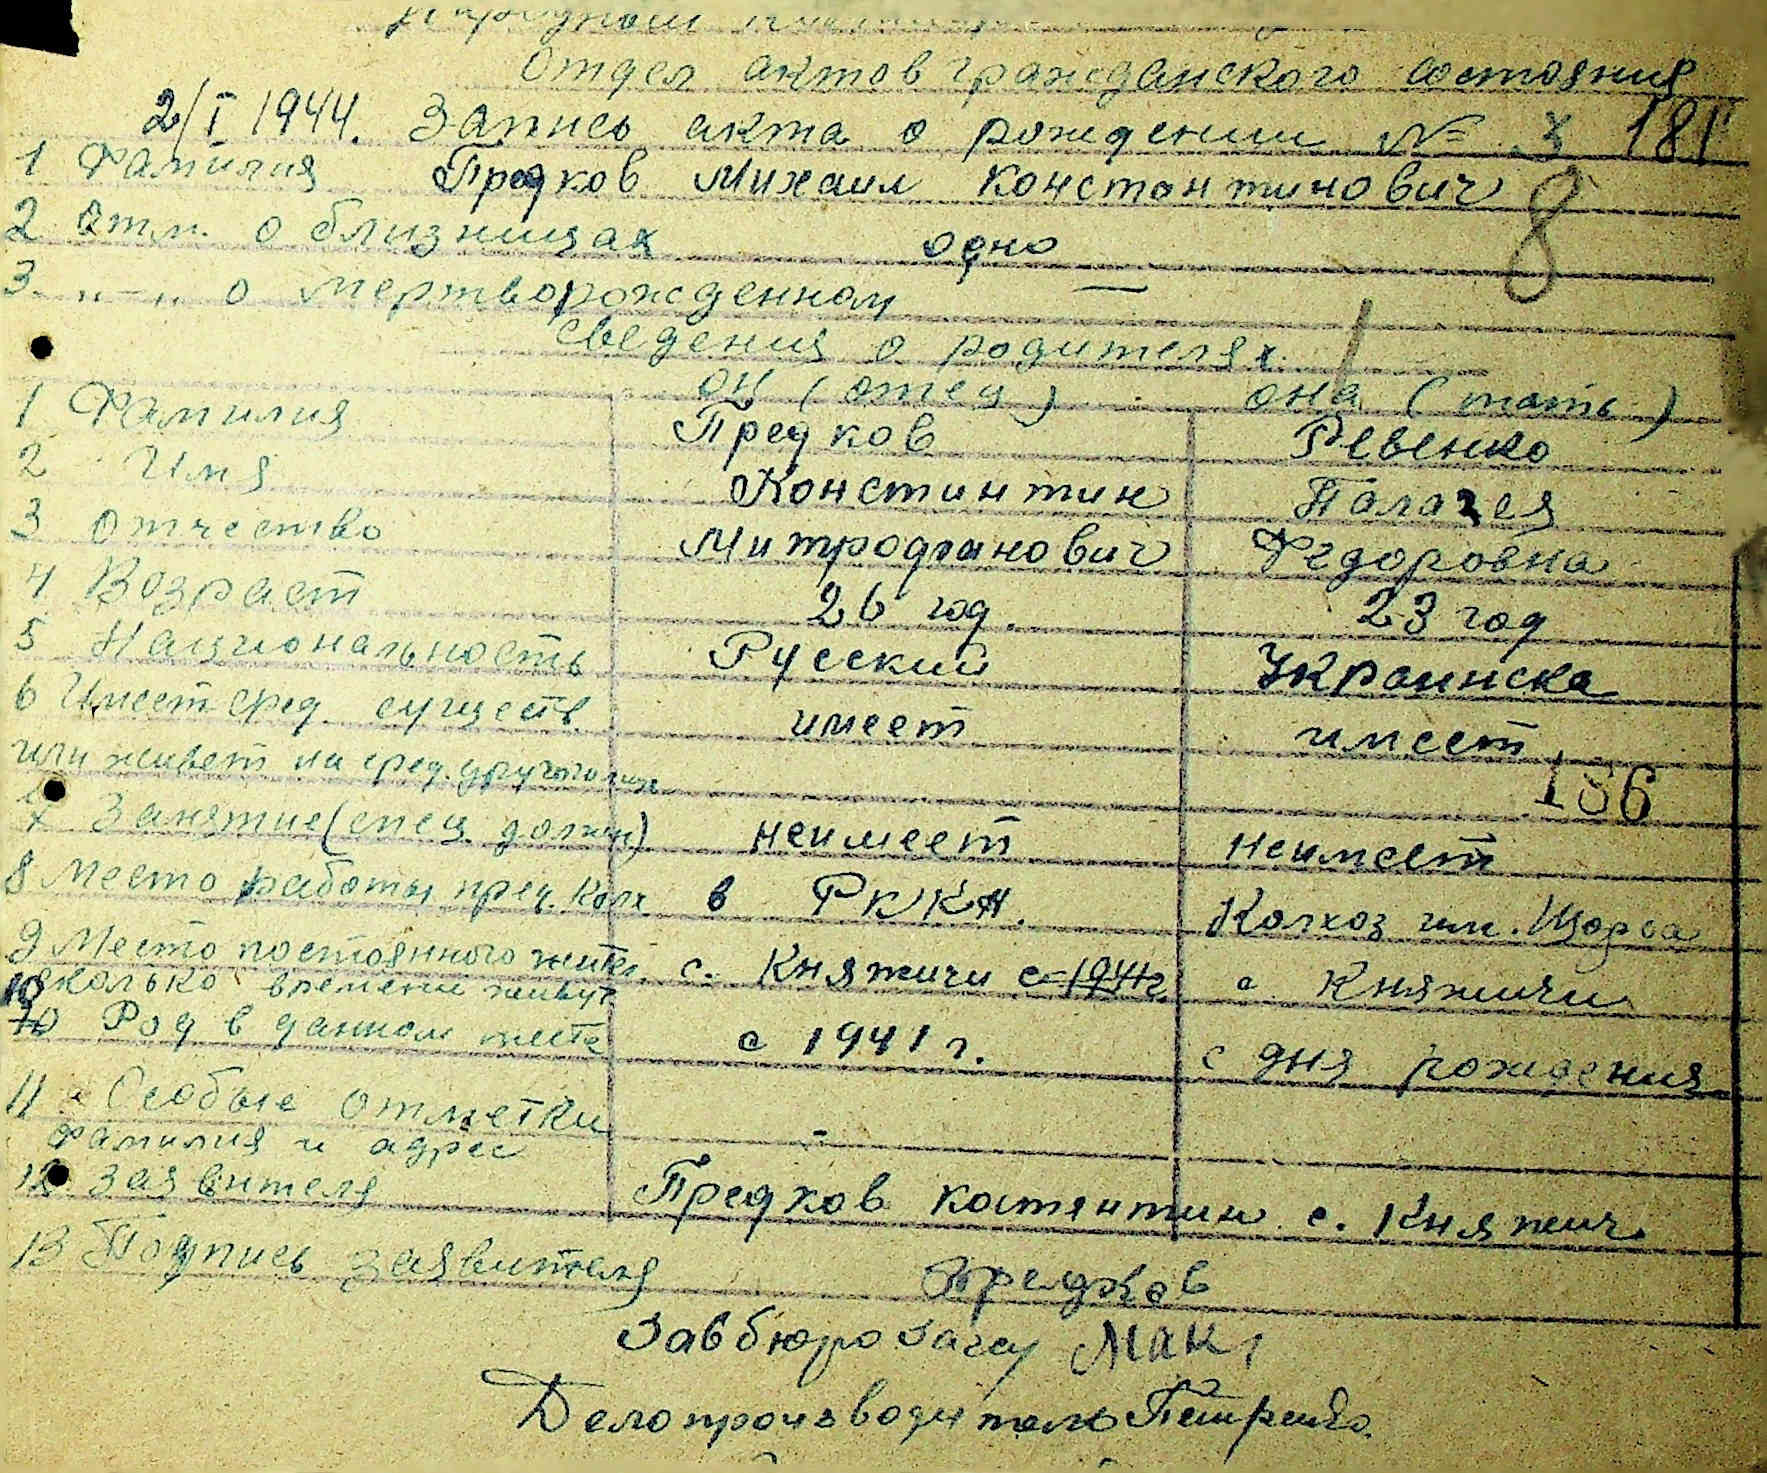 Отдел актов гражданского состояния
2/I 1944. Запись акта о рождении № 3 181
1 Фамилия Предков Михаил Константинович
8
2 Отм. о близницах одно
3 -"- о мертворожденном —
Сведения о родителях
он (отец) она (мать)
1 Фамилия Предков Ревенко
2 Имя Констинтин Палагея
3 Отчество Митрофанович Федоровна
4 Возраст 26 год. 23 год
5 Национальность Русский Украинска
6 Имеет сред. существ. имеет имеет
или живет на сред. других лиц
186
7 Занятие (спец. должн) неимеет неимеет
8 Место работы пред. Колх в РККА. Колхоз им. Щорса
9 Место постоянного жит. с. Княжичи с 1941г с. Княжичи
сколько времени живут
10 Род в данном месте с 1941 г. с дня рождения
11 Особые отметки -
Фамилия и адрес
12 заявителя Предков костянтин с. Княжич
13 Подпись заявителя Предков
Завбюро загсу Мак
Делопроизводитель Петренко